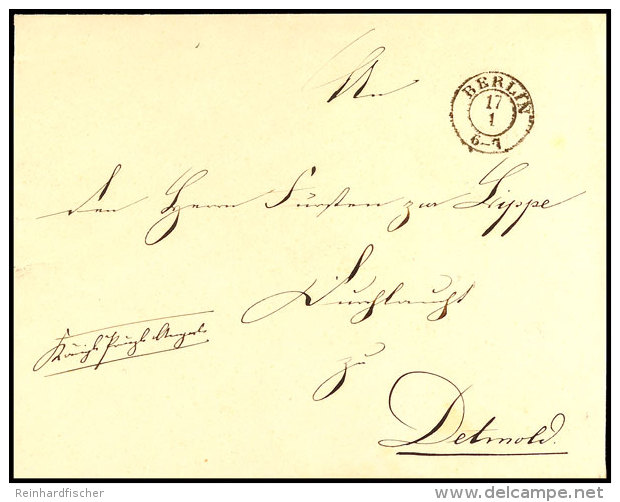 An
BERLIN
17
1
6-7
den Herrn Fürsten zur Lippe
Durchlaucht
Königl. Preuß. Angel.
zu
Detmold.
Reinhardfischer
delcampe.net